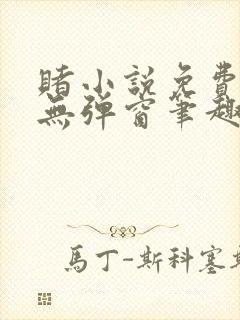 賭小説免費
無彈窗筆趣
馬丁-斯科塞斯